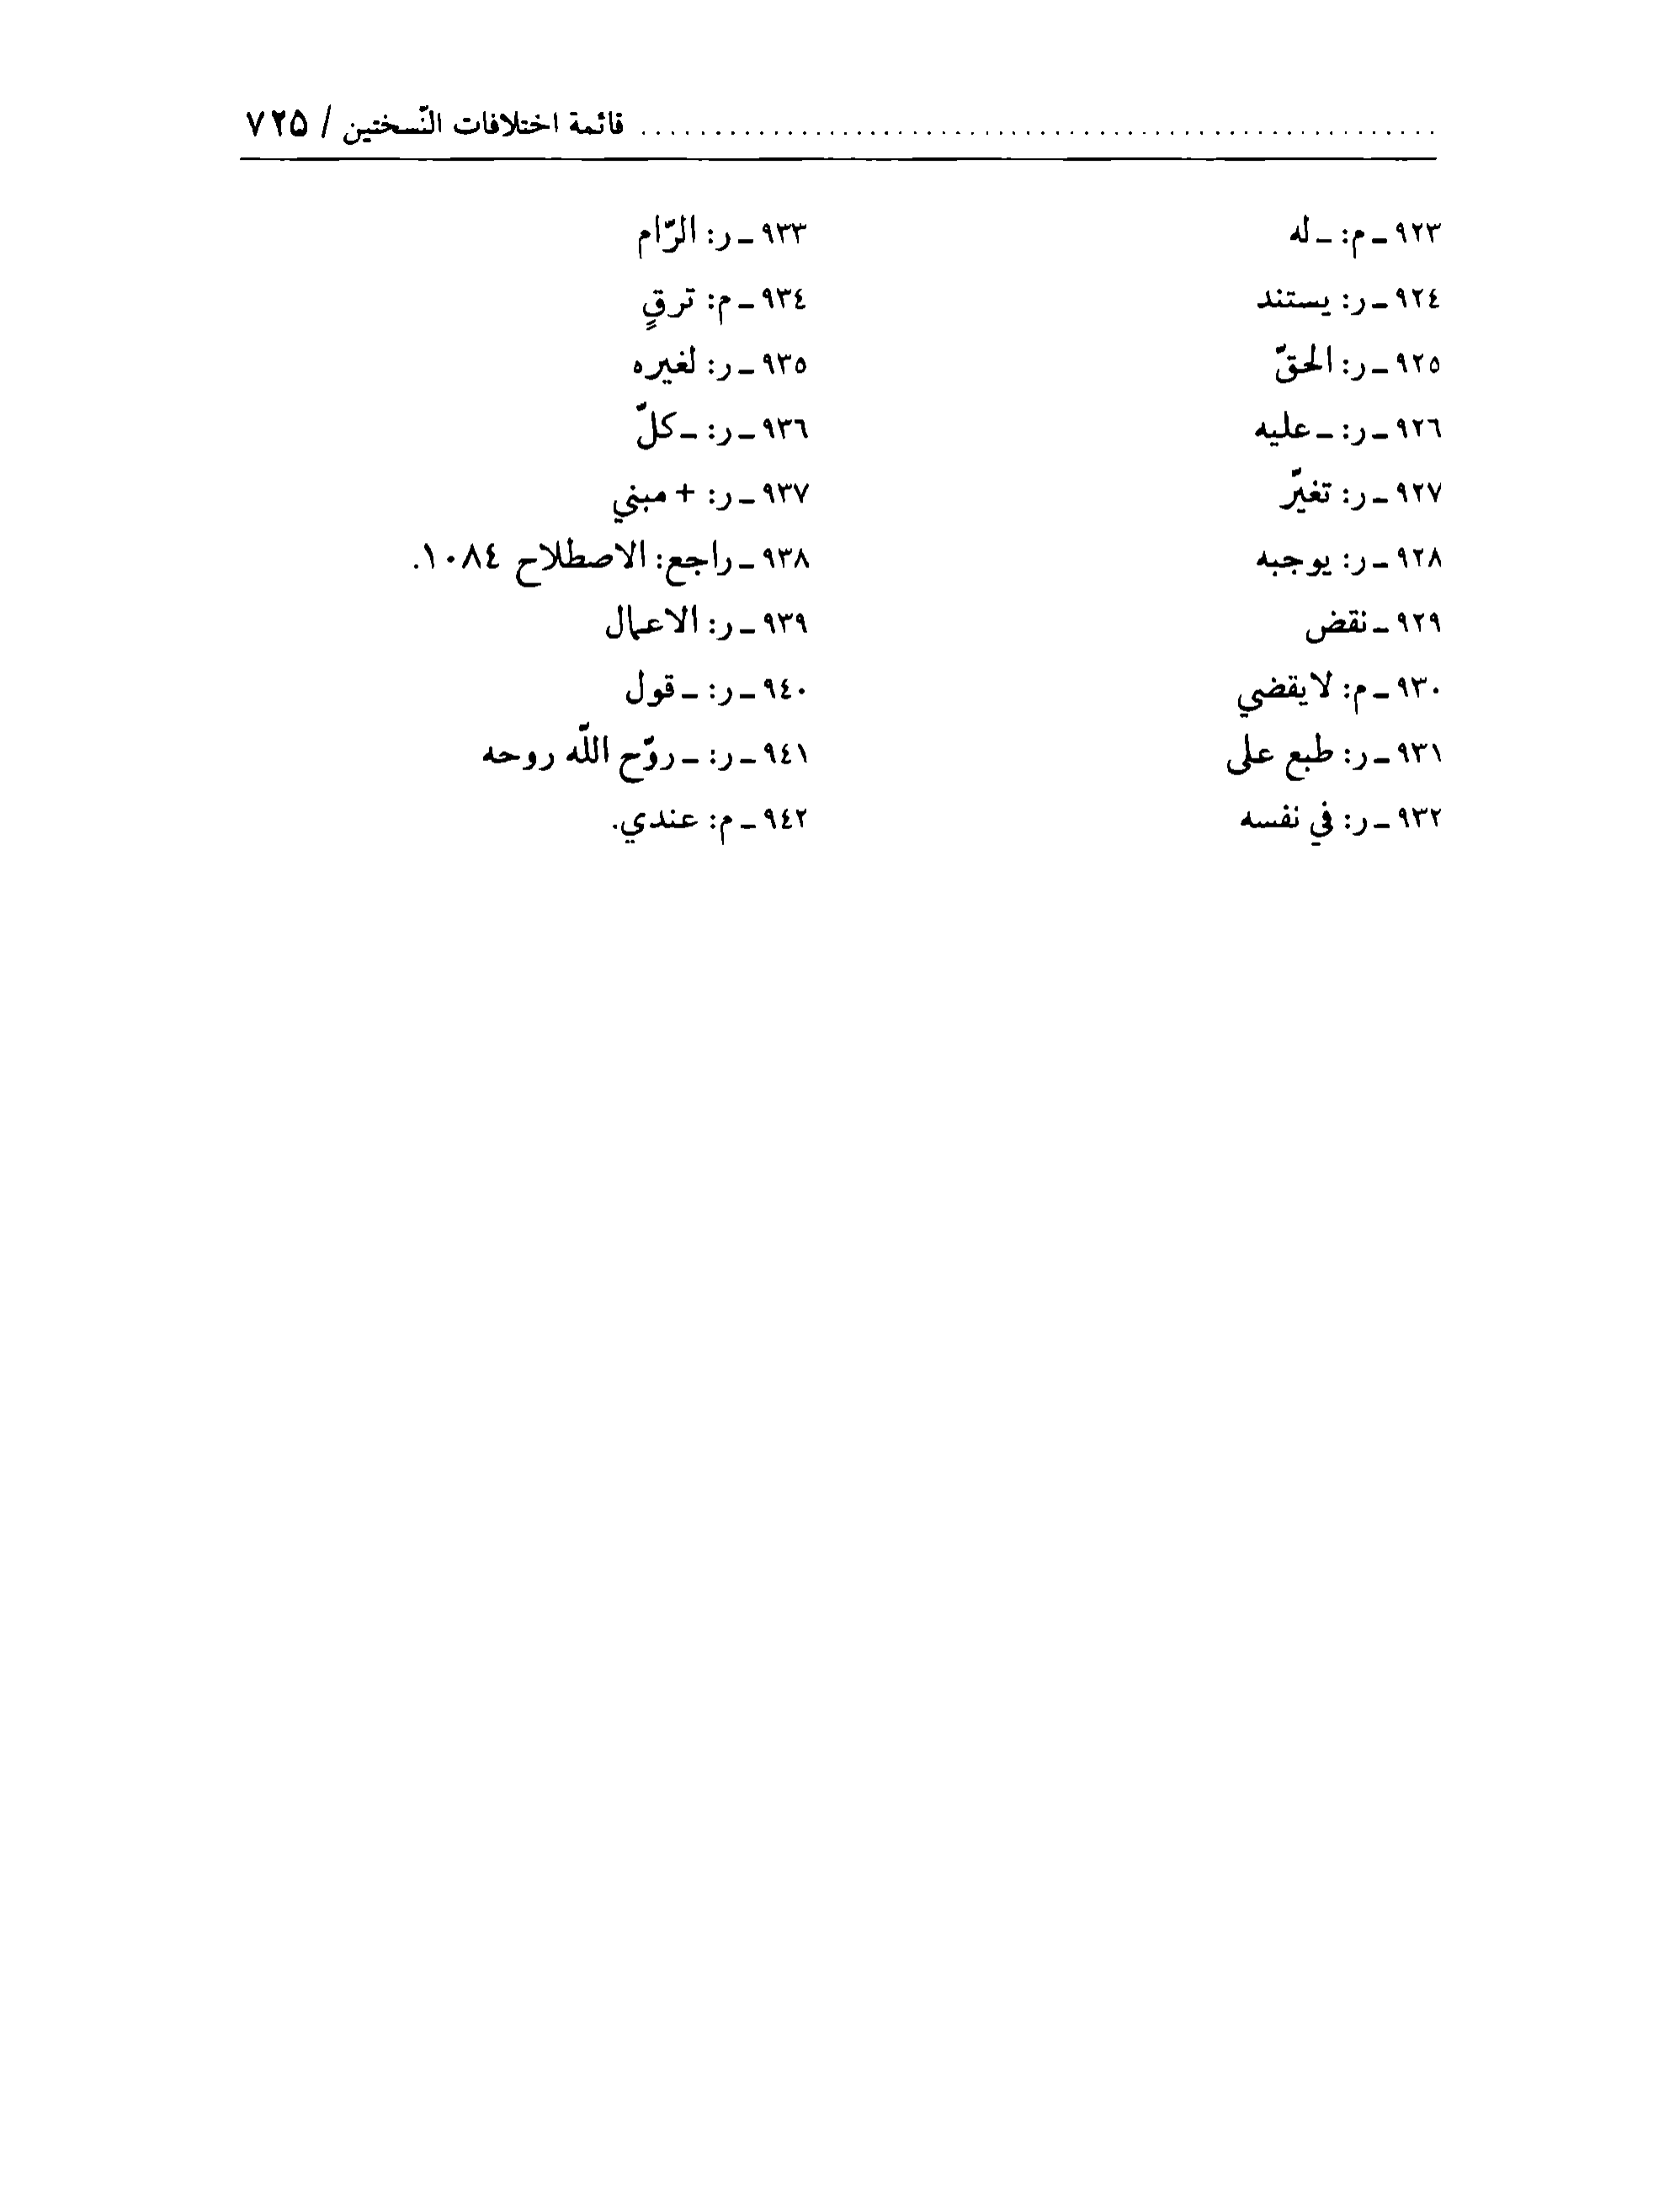 قائمة اختلافات النّسختين / ٧٢٥
٩٢٣ ـ م: ـ له
٩٢٤ ـ ر: يستند
٩٢٥ ـ ر: الحقّ
٩٢٦ ـ ر: ـ عليه
٩٢٧ ـ ر: تغيّر
٩٢٨ ـ ر: يوجبه
٩٢٩ ـ نقض
٩٣٠ ـ م: لايقضي
٩٣١ ـ ر: طبع على
٩٣٢ ـ ر: في نفسه
٩٣٣ ـ ر: الرّام
٩٣٤ ـ م: ترقٍ
٩٣٥ ـ ر: لغيره
٩٣٦ ـ ر: ـ كلّ
٩٣٧ ـ ر: + مبني
٩٣٨ ـ راجع: الاصطلاح ١٠٨٤.
٩٣٩ ـ ر: الاعمال
٩٤٠ ـ ر: ـ قول
٩٤١ ـ ر: ـ روّح اللّه روحه
٩٤٢ ـ م: عندي.